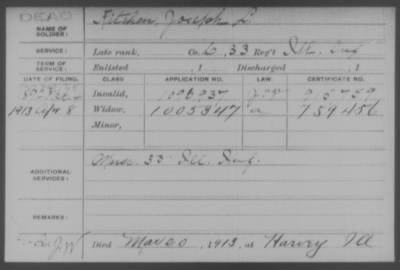 DEAD
NAME OF SOLDIER: Kitchen, Joseph L.
SERVICE: Late rank, Co. C, 33 Reg't Ill. Inf
TERM OF SERVICE: Enlisted , 1 Discharged , 1
DATE OF FILING. CLASS. APPLICATION NO. LAW. CERTIFICATE NO.
Invalid,
1913 Apr 8 Widow, 1005347 a 759456
Minor,
ADDITIONAL SERVICES: Musc. 33 Ill. Inf.
REMARKS:
Died Mar 20, 1913, at Harvey Ill